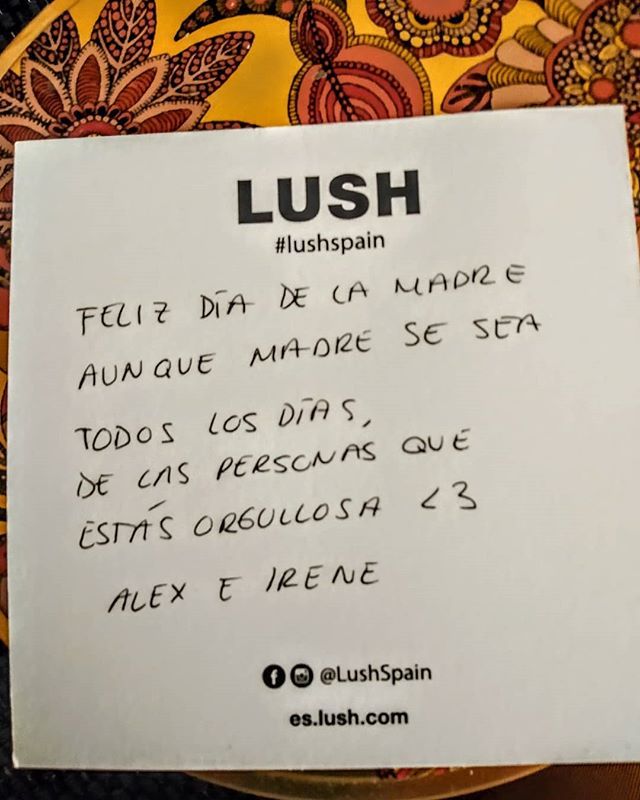 LUSH
#lushspain
FELIZ DÍA DE LA MADRE
AUNQUE MADRE SE SEA
TODOS LOS DÍAS,
DE LAS PERSONAS QUE
ESTÁS ORGULLOSA <3
ALEX E IRENE
@LushSpain
es.lush.com